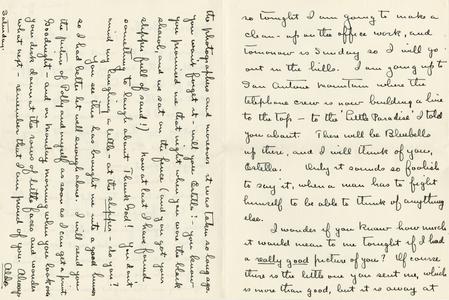 so tonight I am going to make a
clean-up on the office work, and
tomorrow is Sunday so I will go
out in the hills. I am going up to
San Antone Mountain where the
telephone crew is now building a line
to the top - to the "Little Paradise" I told
you about. There will be Bluebells
up there, and I will think of you,
Estella. Only it sounds so foolish
to say it, when a man has to fight
himself to be able to think of anything
else.
I wonder if you know how much
it would mean to me tonight if I had
a really good picture of you? Of course
there is the little one you sent me, which
is more than good, but it is away at
the photographers and moreover it was taken so long ago.
You won't forget it - will you Estella? - you know
you promised me that night when you wore the black
shawl, and we sat on the fence (and you got your
slipper full of sand!) Now at last I have found
something to laugh about Thank God! You don't
mind my laughing a little - at the slipper - do you?
You see this has brought me into a good humor
so I had better let well enough alone. I will send you
the picture of Polly and myself as soon as I can get a print.
Goodnight - and on Monday morning when you look on
your desk down at the rows of little faces and wonder
what next - remember that I am proud of you. Always
Aldo.
Saturday.